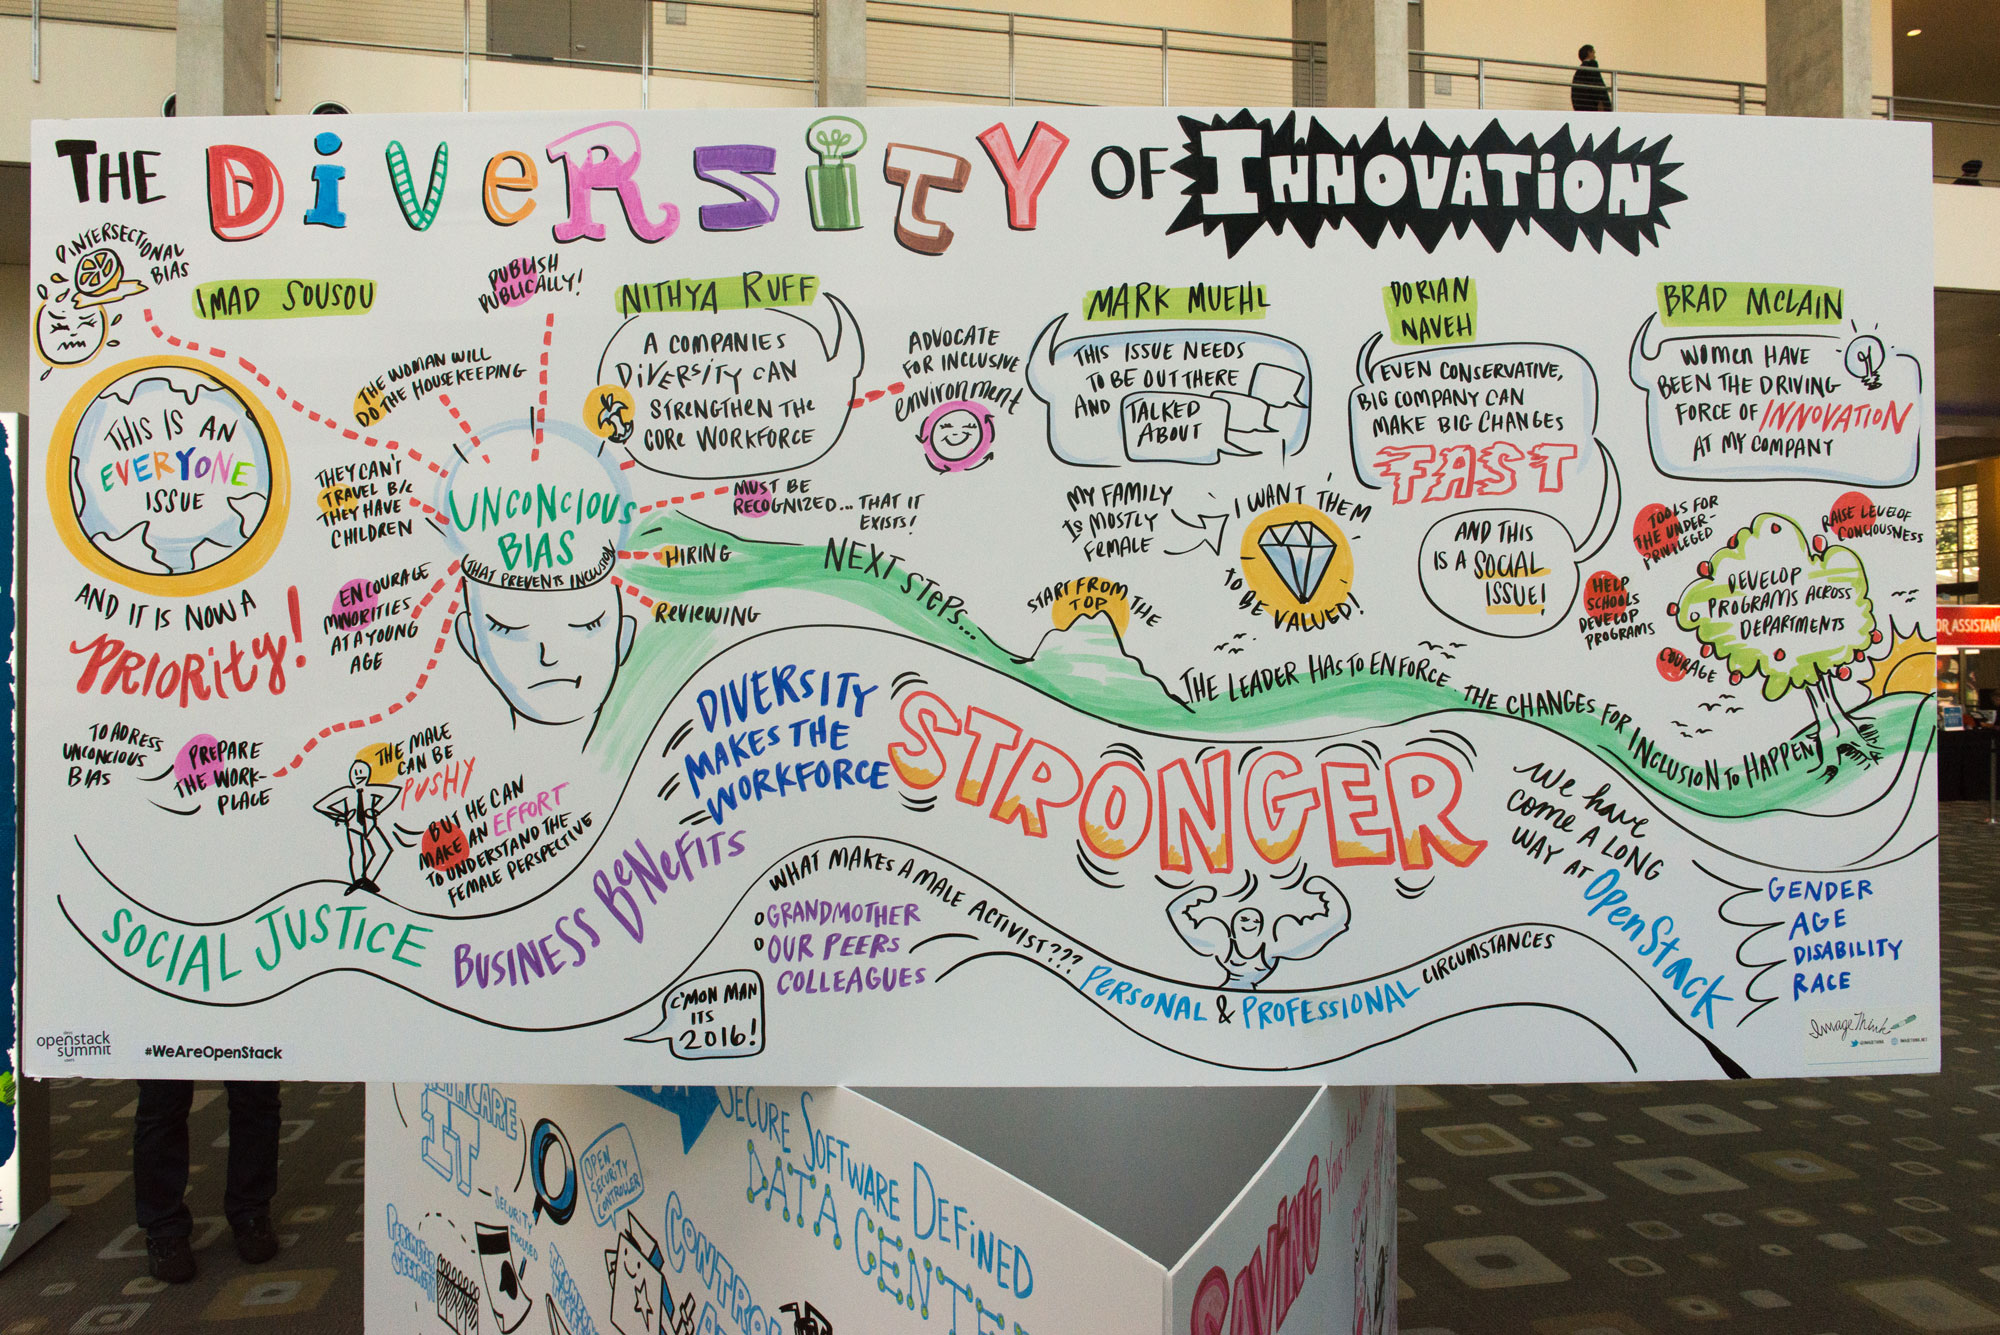 THE DIVERSITY OF INNOVATION
INTERSECTIONAL
BIAS
IMAD SOUSOU
PUBLISH
PUBLICALLY!
THIS IS AN
EVERYONE
ISSUE
AND IT IS NOW A
PRIORITY!
THE WOMAN WILL
DO THE HOUSEKEEPING
THEY CAN'T
TRAVEL B/C
THEY HAVE
CHILDREN
ENCOURAGE
MINORITIES
AT A YOUNG
AGE
TO ADRESS
UNCONCIOUS
BIAS
PREPARE
THE WORK-
PLACE
UNCONCIOUS
BIAS
THAT PREVENTS INCLUSION
NITHYA RUFF
A COMPANIES
DIVERSITY CAN
STRENGTHEN THE
CORE WORKFORCE
ADVOCATE
FOR INCLUSIVE
ENVIRONMENT
MUST BE
RECOGNIZED... THAT IT
EXISTS!
HIRING
REVIEWING
THE MALE
CAN BE
PUSHY
BUT HE CAN
MAKE AN EFFORT
TO UNDERSTAND THE
FEMALE PERSPECTIVE
MARK MUEHL
THIS ISSUE NEEDS
TO BE OUT THERE
AND TALKED
ABOUT
MY FAMILY
IS MOSTLY
FEMALE
I WANT THEM
TO BE VALUED!
DORIAN
NAVEH
EVEN CONSERVATIVE,
BIG COMPANY CAN
MAKE BIG CHANGES
FAST
AND THIS
IS A SOCIAL
ISSUE!
BRAD MCLAIN
WOMEN HAVE
BEEN THE DRIVING
FORCE OF INNOVATION
AT MY COMPANY
TOOLS FOR
THE UNDER-
PRIVILEGED
RAISE LEVEL OF
CONCIOUSNESS
HELP
SCHOOLS
DEVELOP
PROGRAMS
COURAGE
DEVELOP
PROGRAMS ACROSS
DEPARTMENTS
NEXT STEPS...
START FROM THE
TOP
THE LEADER HAS TO ENFORCE THE CHANGES FOR INCLUSION TO HAPPEN
SOCIAL JUSTICE
BUSINESS BENEFITS
DIVERSITY
MAKES THE
WORKFORCE
STRONGER
WHAT MAKES A MALE ACTIVIST???
GRANDMOTHER
OUR PEERS
COLLEAGUES
PERSONAL & PROFESSIONAL CIRCUMSTANCES
C'MON MAN
ITS
2016!
WE HAVE
COME A LONG
WAY AT OPENSTACK
GENDER
AGE
DISABILITY
RACE
openstack
summit
#WeAreOpenStack
ImageThink
@IMAGETHINK IMAGETHINK.NET
OR ASSISTAN
IT
SECURITY
FOCUSED
OPEN
SECURITY
CONTROLLER
SECURE SOFTWARE DEFINED
DATA CENTE
PERIMETER
SECURITY
CONTROL
SAVING